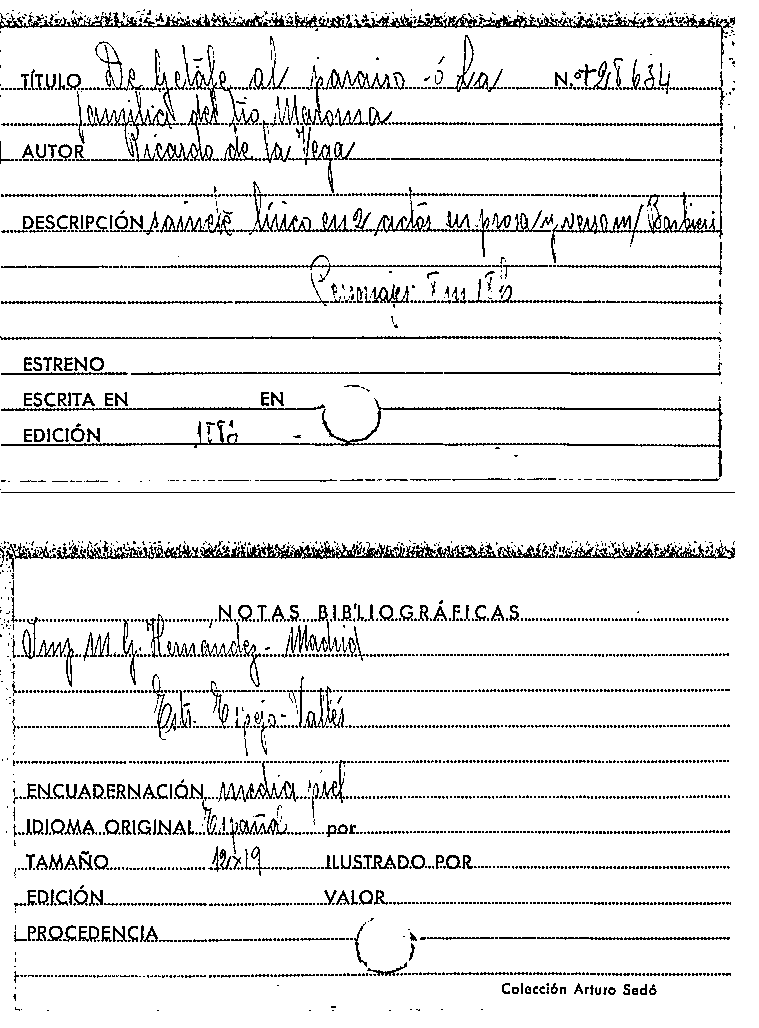 TÍTULO De Getafe al paraiso ó La N.º +28634
familia del tio Maroma
AUTOR Ricardo de la Vega
DESCRIPCIÓN sainete lírico en 2 actos en prosa y verso m/ Barbieri
Personajes
ESTRENO
ESCRITA EN EN
EDICIÓN 1883
NOTAS BIBLIOGRÁFICAS
Imp M. G. Hernández - Madrid
Estr. Espejo - Vallés
ENCUADERNACIÓN media piel
IDIOMA ORIGINAL Español por
TAMAÑO 12x19 ILUSTRADO POR
EDICIÓN VALOR
PROCEDENCIA
Colección Arturo Sedó